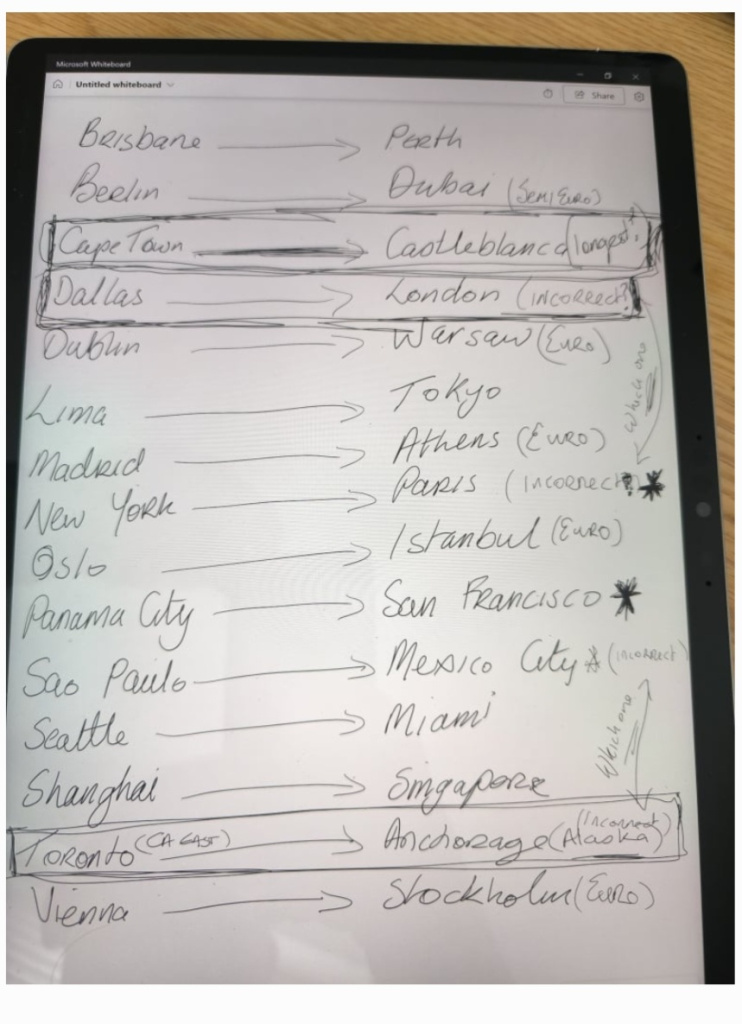 Microsoft Whiteboard
Untitled whiteboard
Share
Brisbane → Perth
Berlin → Dubai (Semi Euro)
Cape Town → Castleblanca (longest?)
Dallas → London (INCORRECT?)
Dublin → Warsaw (Euro)
Which one
Lima → Tokyo
Madrid → Athens (Euro)
New York → Paris (INCORRECT? *
Oslo → Istanbul (Euro)
Panama City → San Francisco *
Sao Paulo → Mexico City * (INCORRECT)
Seattle → Miami
Which one
Shanghai → Singapore
Toronto (CA EAST) → Anchorage (Alaska) (Incorrect)
Vienna → Stockholm (Euro)